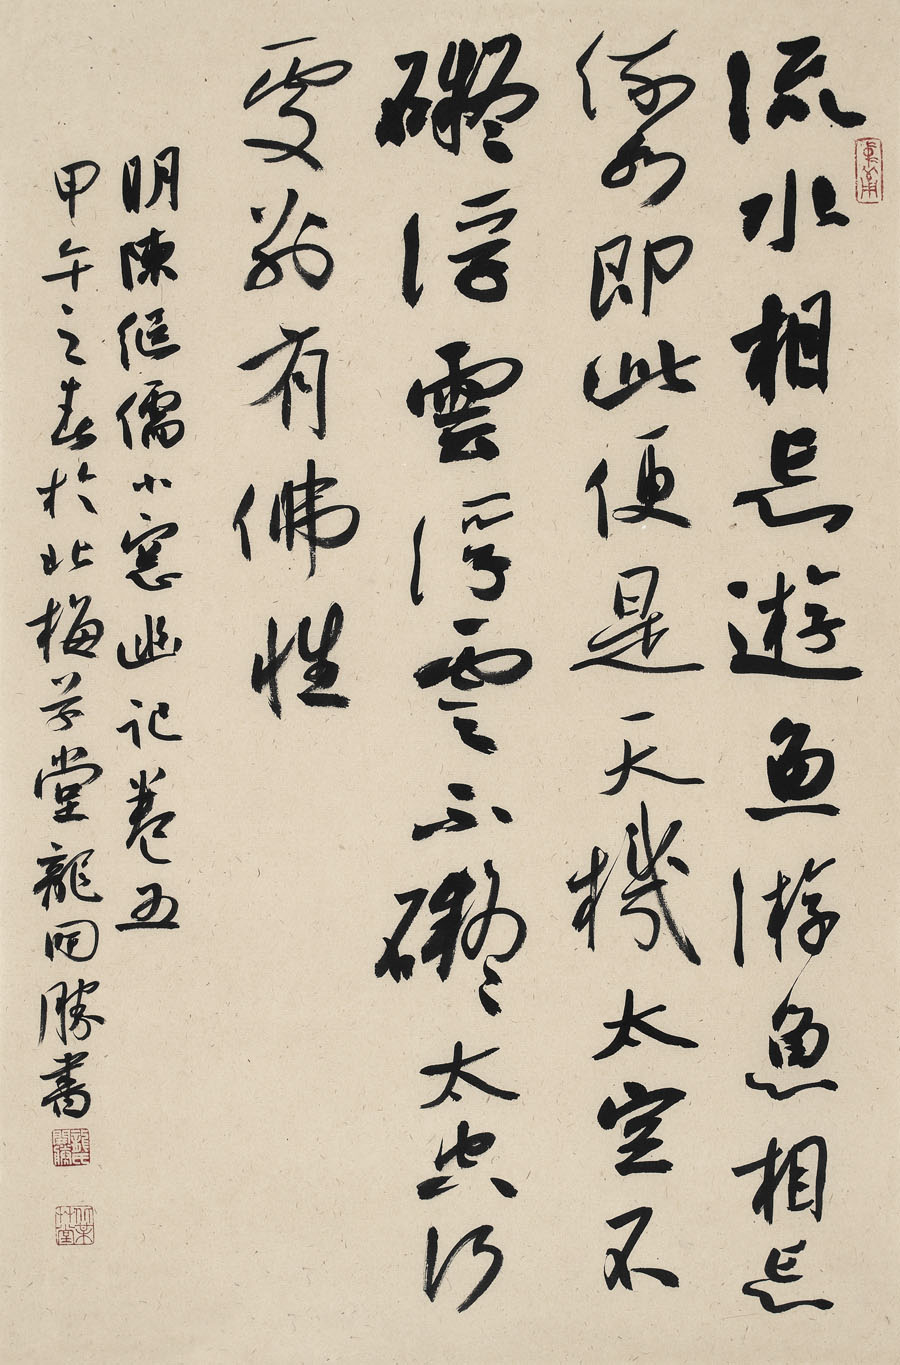 流水相忘遊魚游魚相忘
流水即此便是天機太空不
礙浮雲浮雲不礙太空何
處別有佛性
明陳继儒小窓幽记卷五
甲午之春於北梅草堂龍開勝書